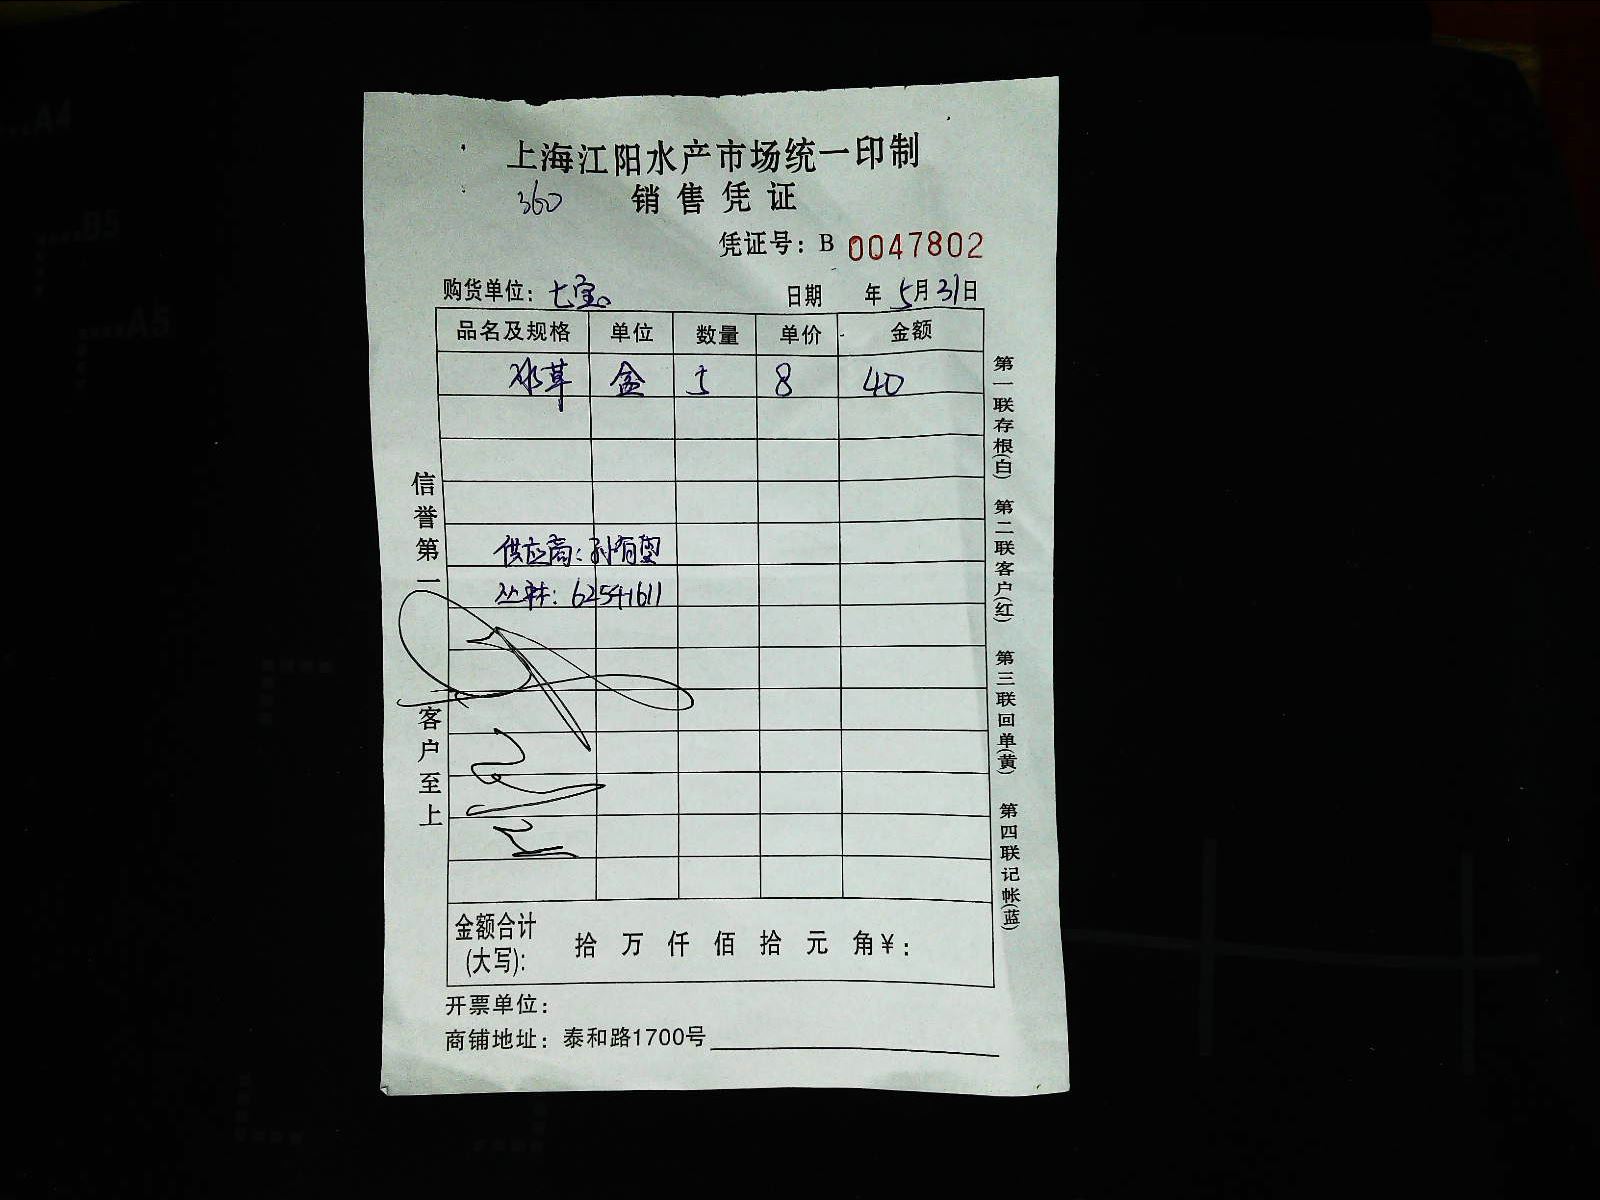 上海江阳水产市场统一印制
360 销售凭证
凭证号：B 0047802
购货单位：七宝 日期 年 5月31日
品名及规格 单位 数量 单价 金额
冰草 盒 5 8 40
供应商：孙有望
丛林：62541611
信誉第一 客户至上
第一联存根(白) 第二联客户(红) 第三联回单(黄) 第四联记帐(蓝)
金额合计
(大写)： 拾 万 仟 佰 拾 元 角¥：
开票单位：
商铺地址：泰和路1700号